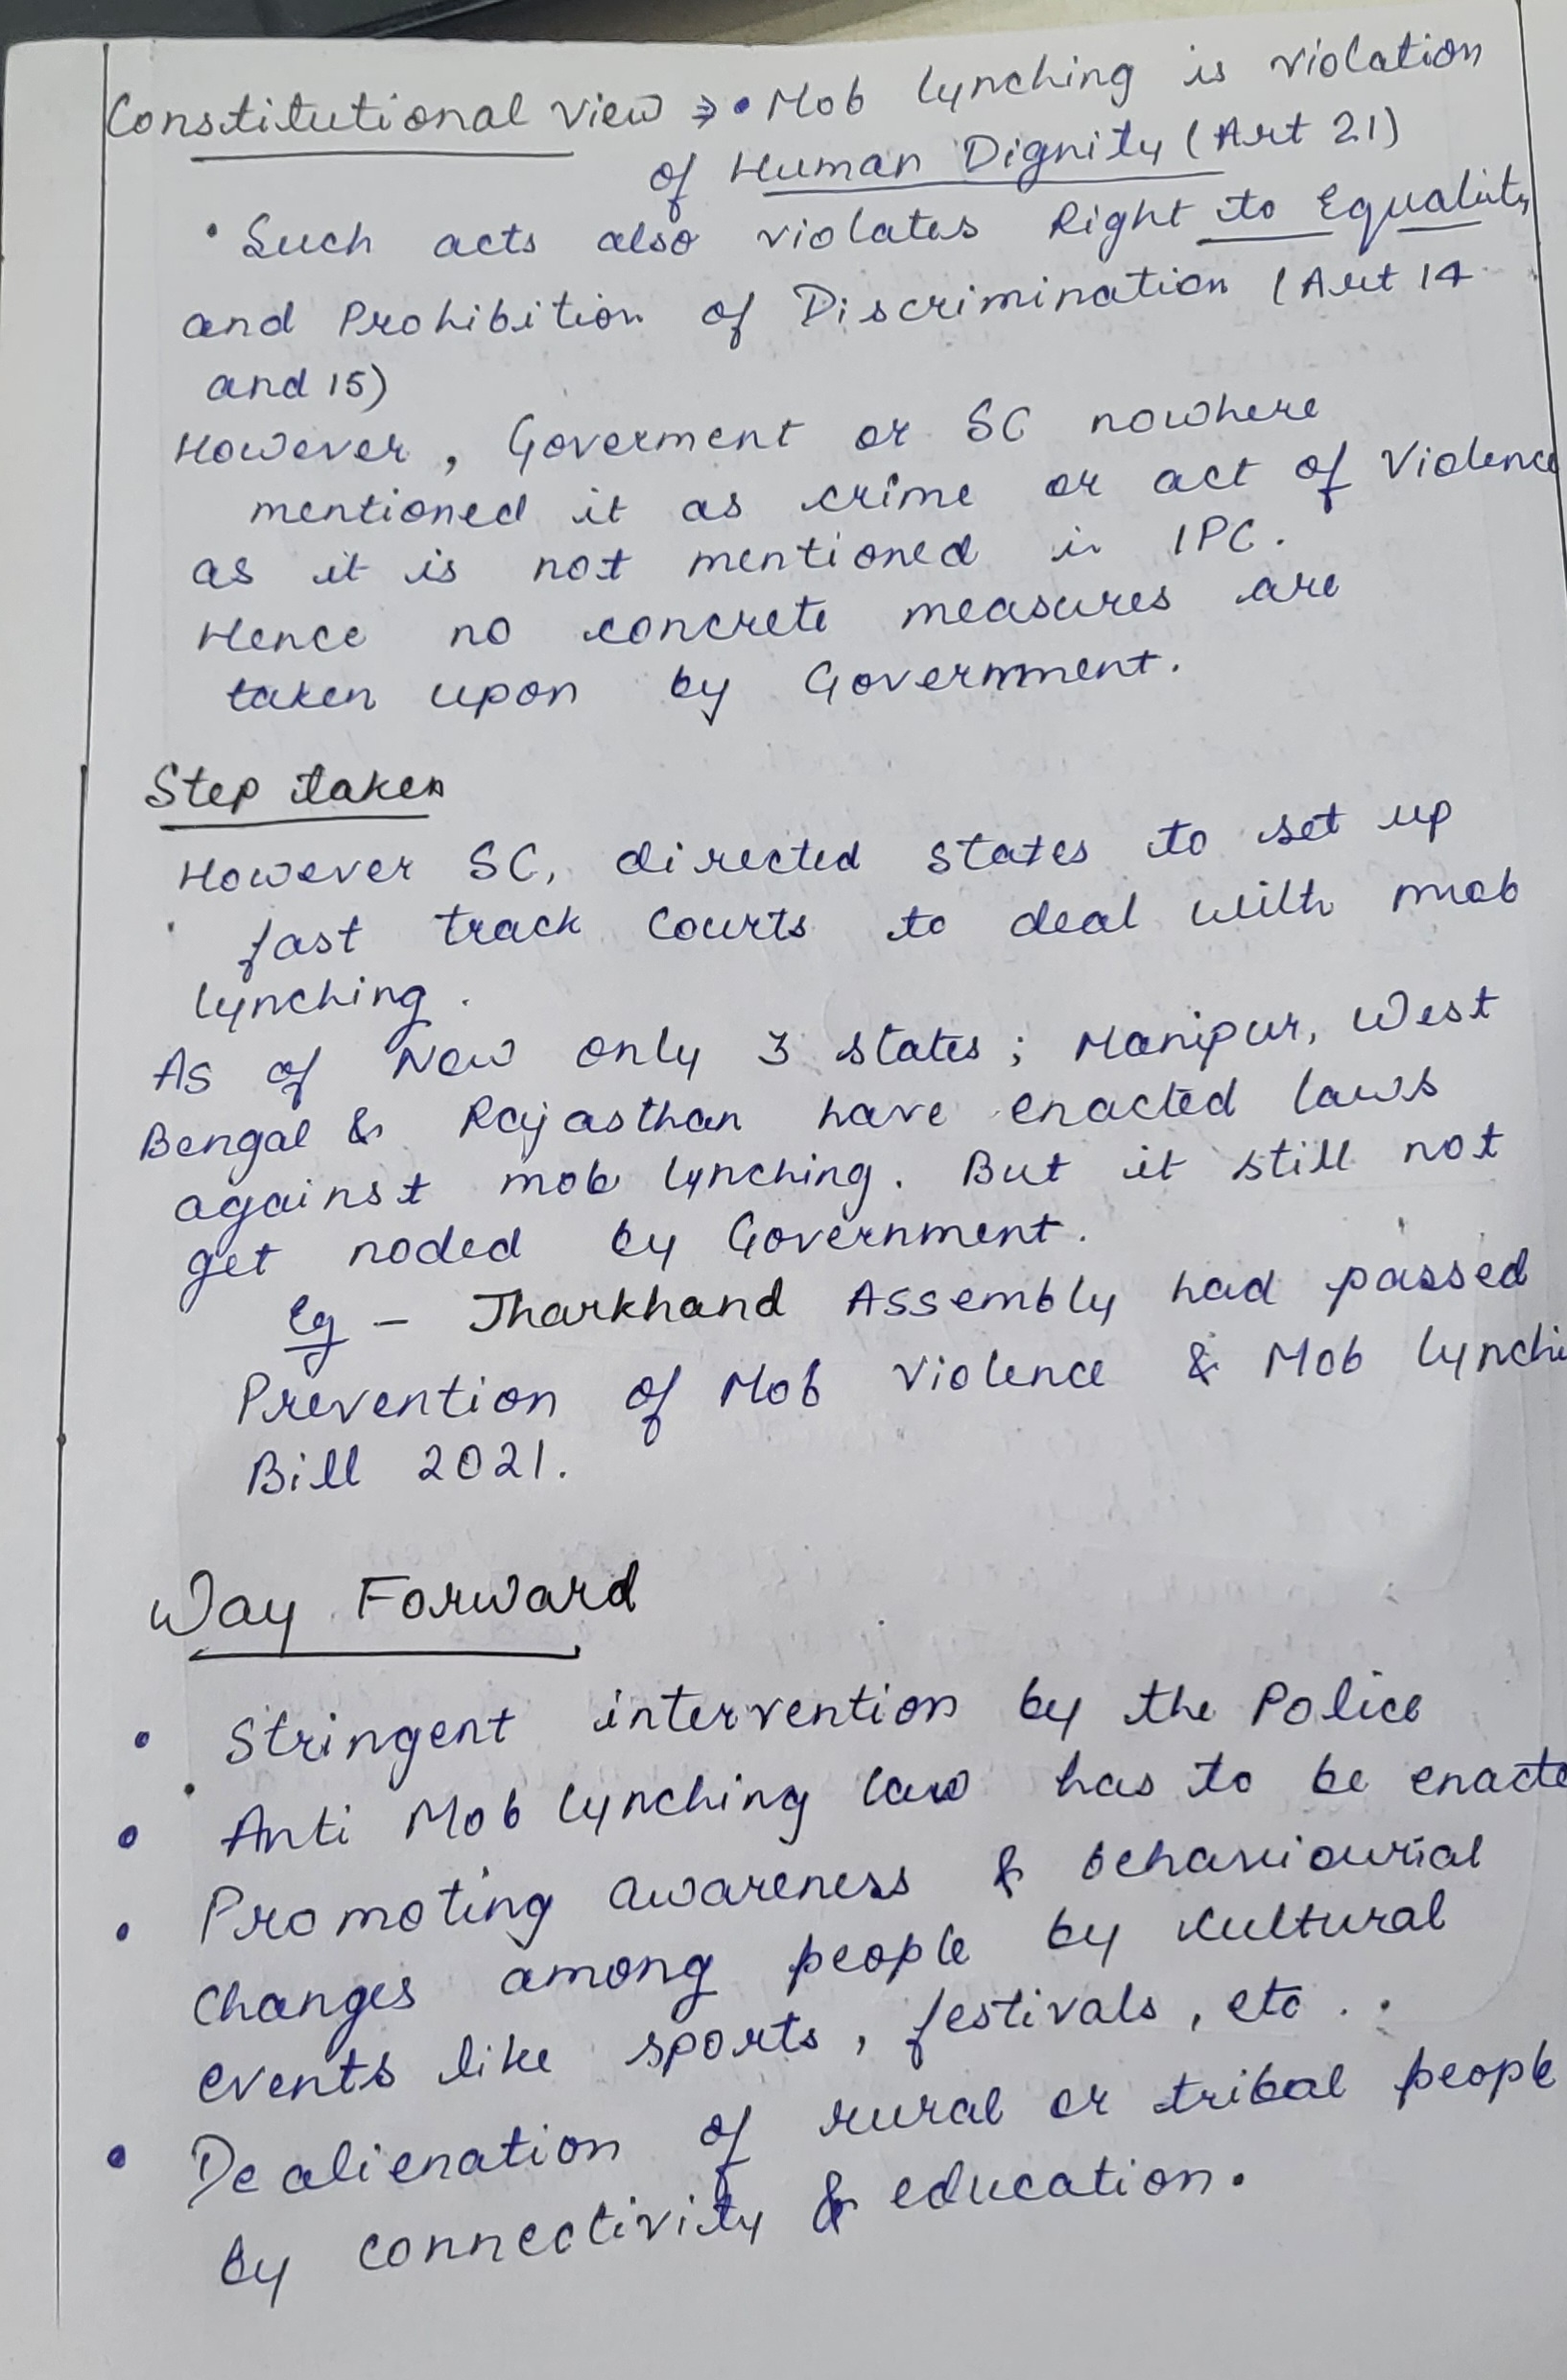 Constitutional View ⇒ • Mob lynching is violation
of Human Dignity (Art 21)
• Such acts also violates Right to Equality
and Prohibition of Discrimination (Art 14
and 15)
However, Goverment or SC nowhere
mentioned it as crime or act of Violence
as it is not mentioned in IPC.
Hence no concrete measures are
taken upon by Government.
Step taken
However SC, directed states to set up
fast track Courts to deal with mob
lynching.
As of Now only 3 states; Manipur, West
Bengal & Rajasthan have enacted laws
against mob lynching. But it still not
get noded by Government.
Eg - Jharkhand Assembly had passed
Prevention of Mob Violence & Mob lynchi
Bill 2021.
Way Forward
• Stringent intervention by the Police
• Anti Mob lynching law has to be enacte
• Promoting awareness & behaviourial
Changes among people by cultural
events like sports, festivals, etc..
• De alienation of rural or tribal people
by connectivity & education.